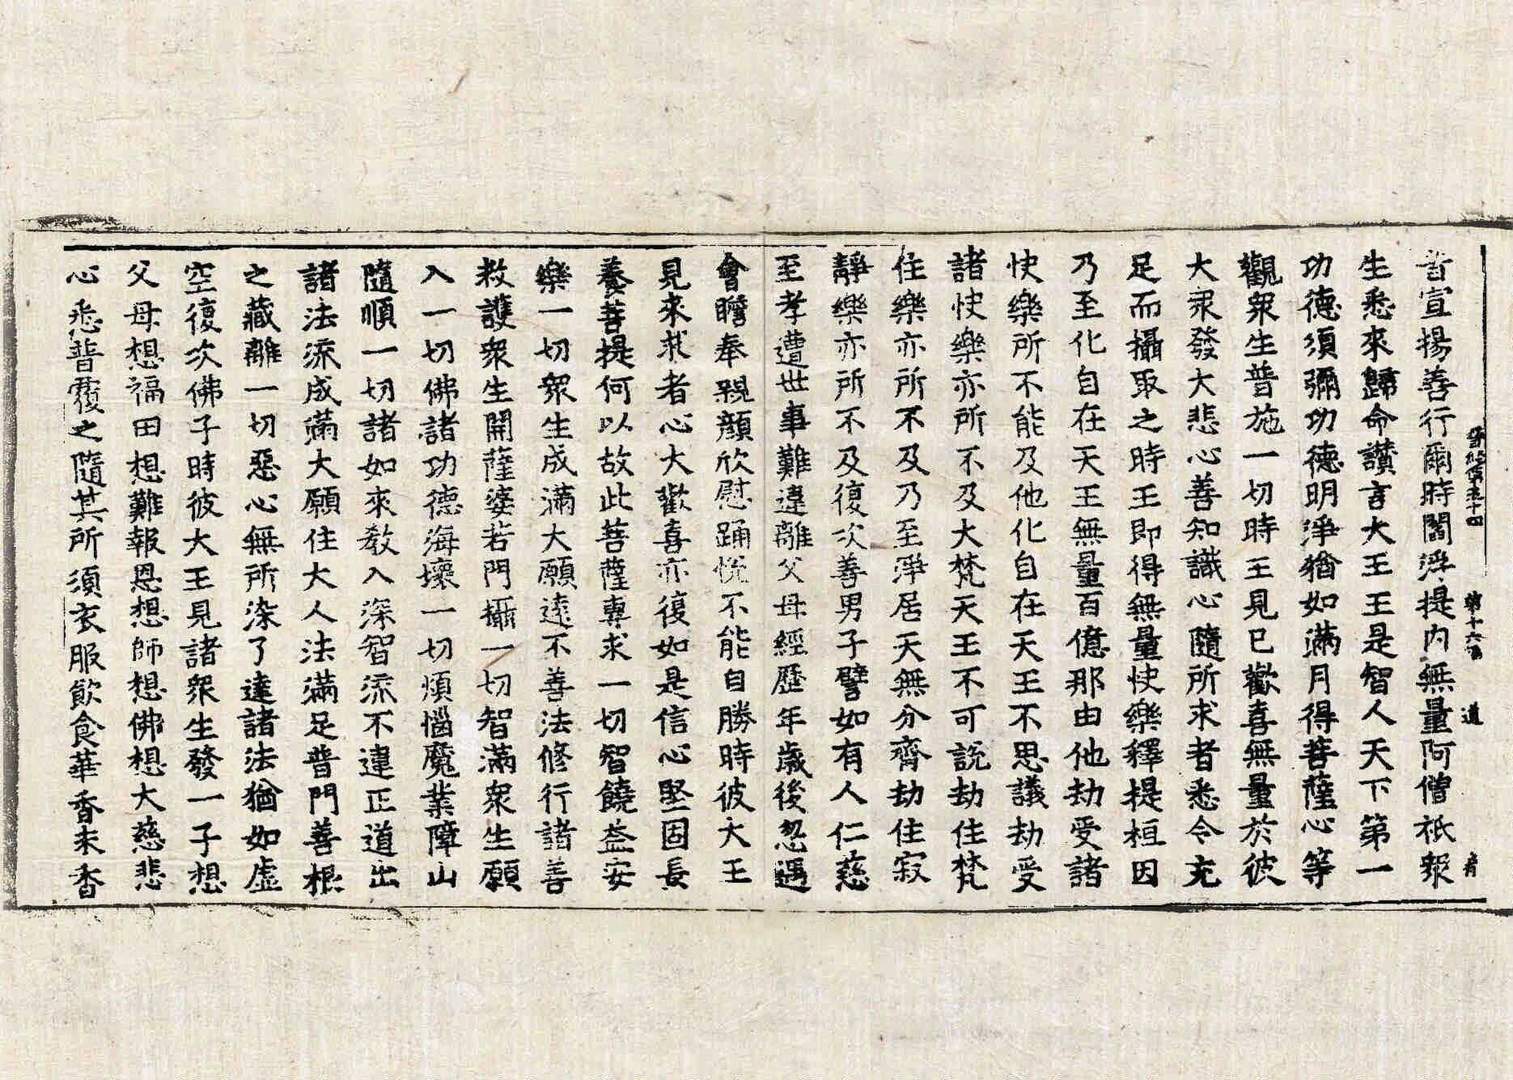 音宣揚善行爾時閻浮提内無量阿僧祇眾
生悉來歸命讚言大王王是智人天下第一
功德須彌功德明淨猶如滿月得菩薩心等
觀眾生普施一切時王見已歡喜無量於彼
大眾發大悲心善知識心隨所求者悉令充
足而攝取之時王即得無量快樂釋提桓因
乃至化自在天王無量百億那由他劫受諸
快樂所不能及他化自在天王不思議劫受
諸快樂亦所不及大梵天王不可說劫住梵
住樂亦所不及乃至淨居天無分齊劫住寂
靜樂亦所不及復次善男子譬如有人仁慈
至孝遭世事難違離父母經歷年歲後忽遇
會瞻奉親顏欣慰踊悅不能自勝時彼大王
見來求者心大歡喜亦復如是信心堅固長
養菩提何以故此菩薩專求一切智饒益安
樂一切眾生成滿大願遠不善法修行諸善
救護眾生開薩婆若門攝一切智滿眾生願
入一切佛諸功德海壞一切煩惱魔業障山
隨順一切諸如來教入深智流不違正道出
諸法流成滿大願住大人法滿足普門善根
之藏離一切惡心無所染了達諸法猶如虛
空復次佛子時彼大王見諸眾生發一子想
父母想福田想難報恩想師想佛想大慈悲
心悉普覆之隨其所須衣服飲食華香末香